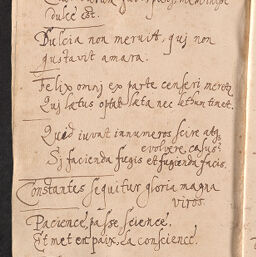 dulce est.
Dulcia non meruit, qui non
gustavit amara.
Felix omni ex parte censeri meret
Qui lætus optat læta nec timet.
Quid iuvat innumeros scire atq
evolvere casus
Si facienda fugis et fugienda facis.
Constantes sequitur gloria magna
viros.
Pacience passe science.
Et met en paix, la conscience.